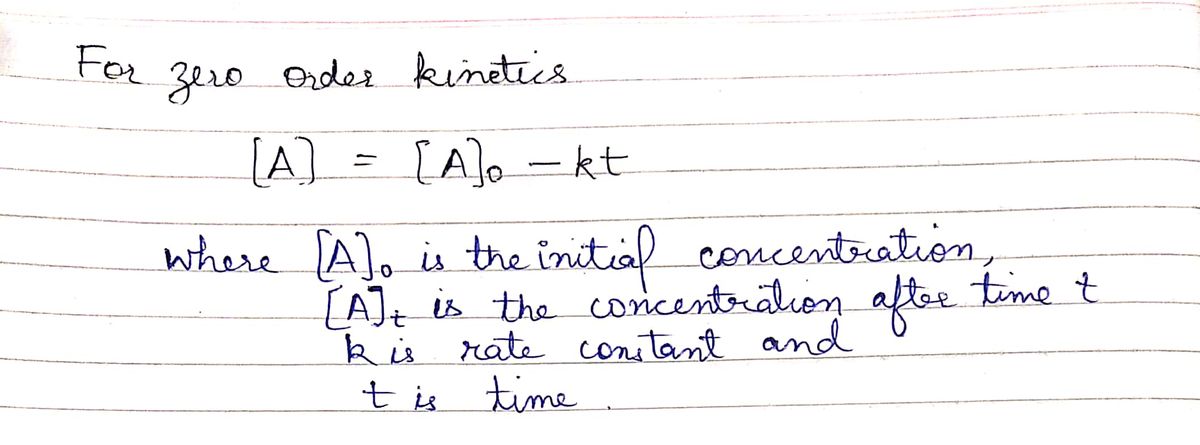 For zero order kinetics
[A] = [A]₀ – kt
where [A]₀ is the initial concentration,
[A]ₜ is the concentration after time t
k is rate constant and
t is time.